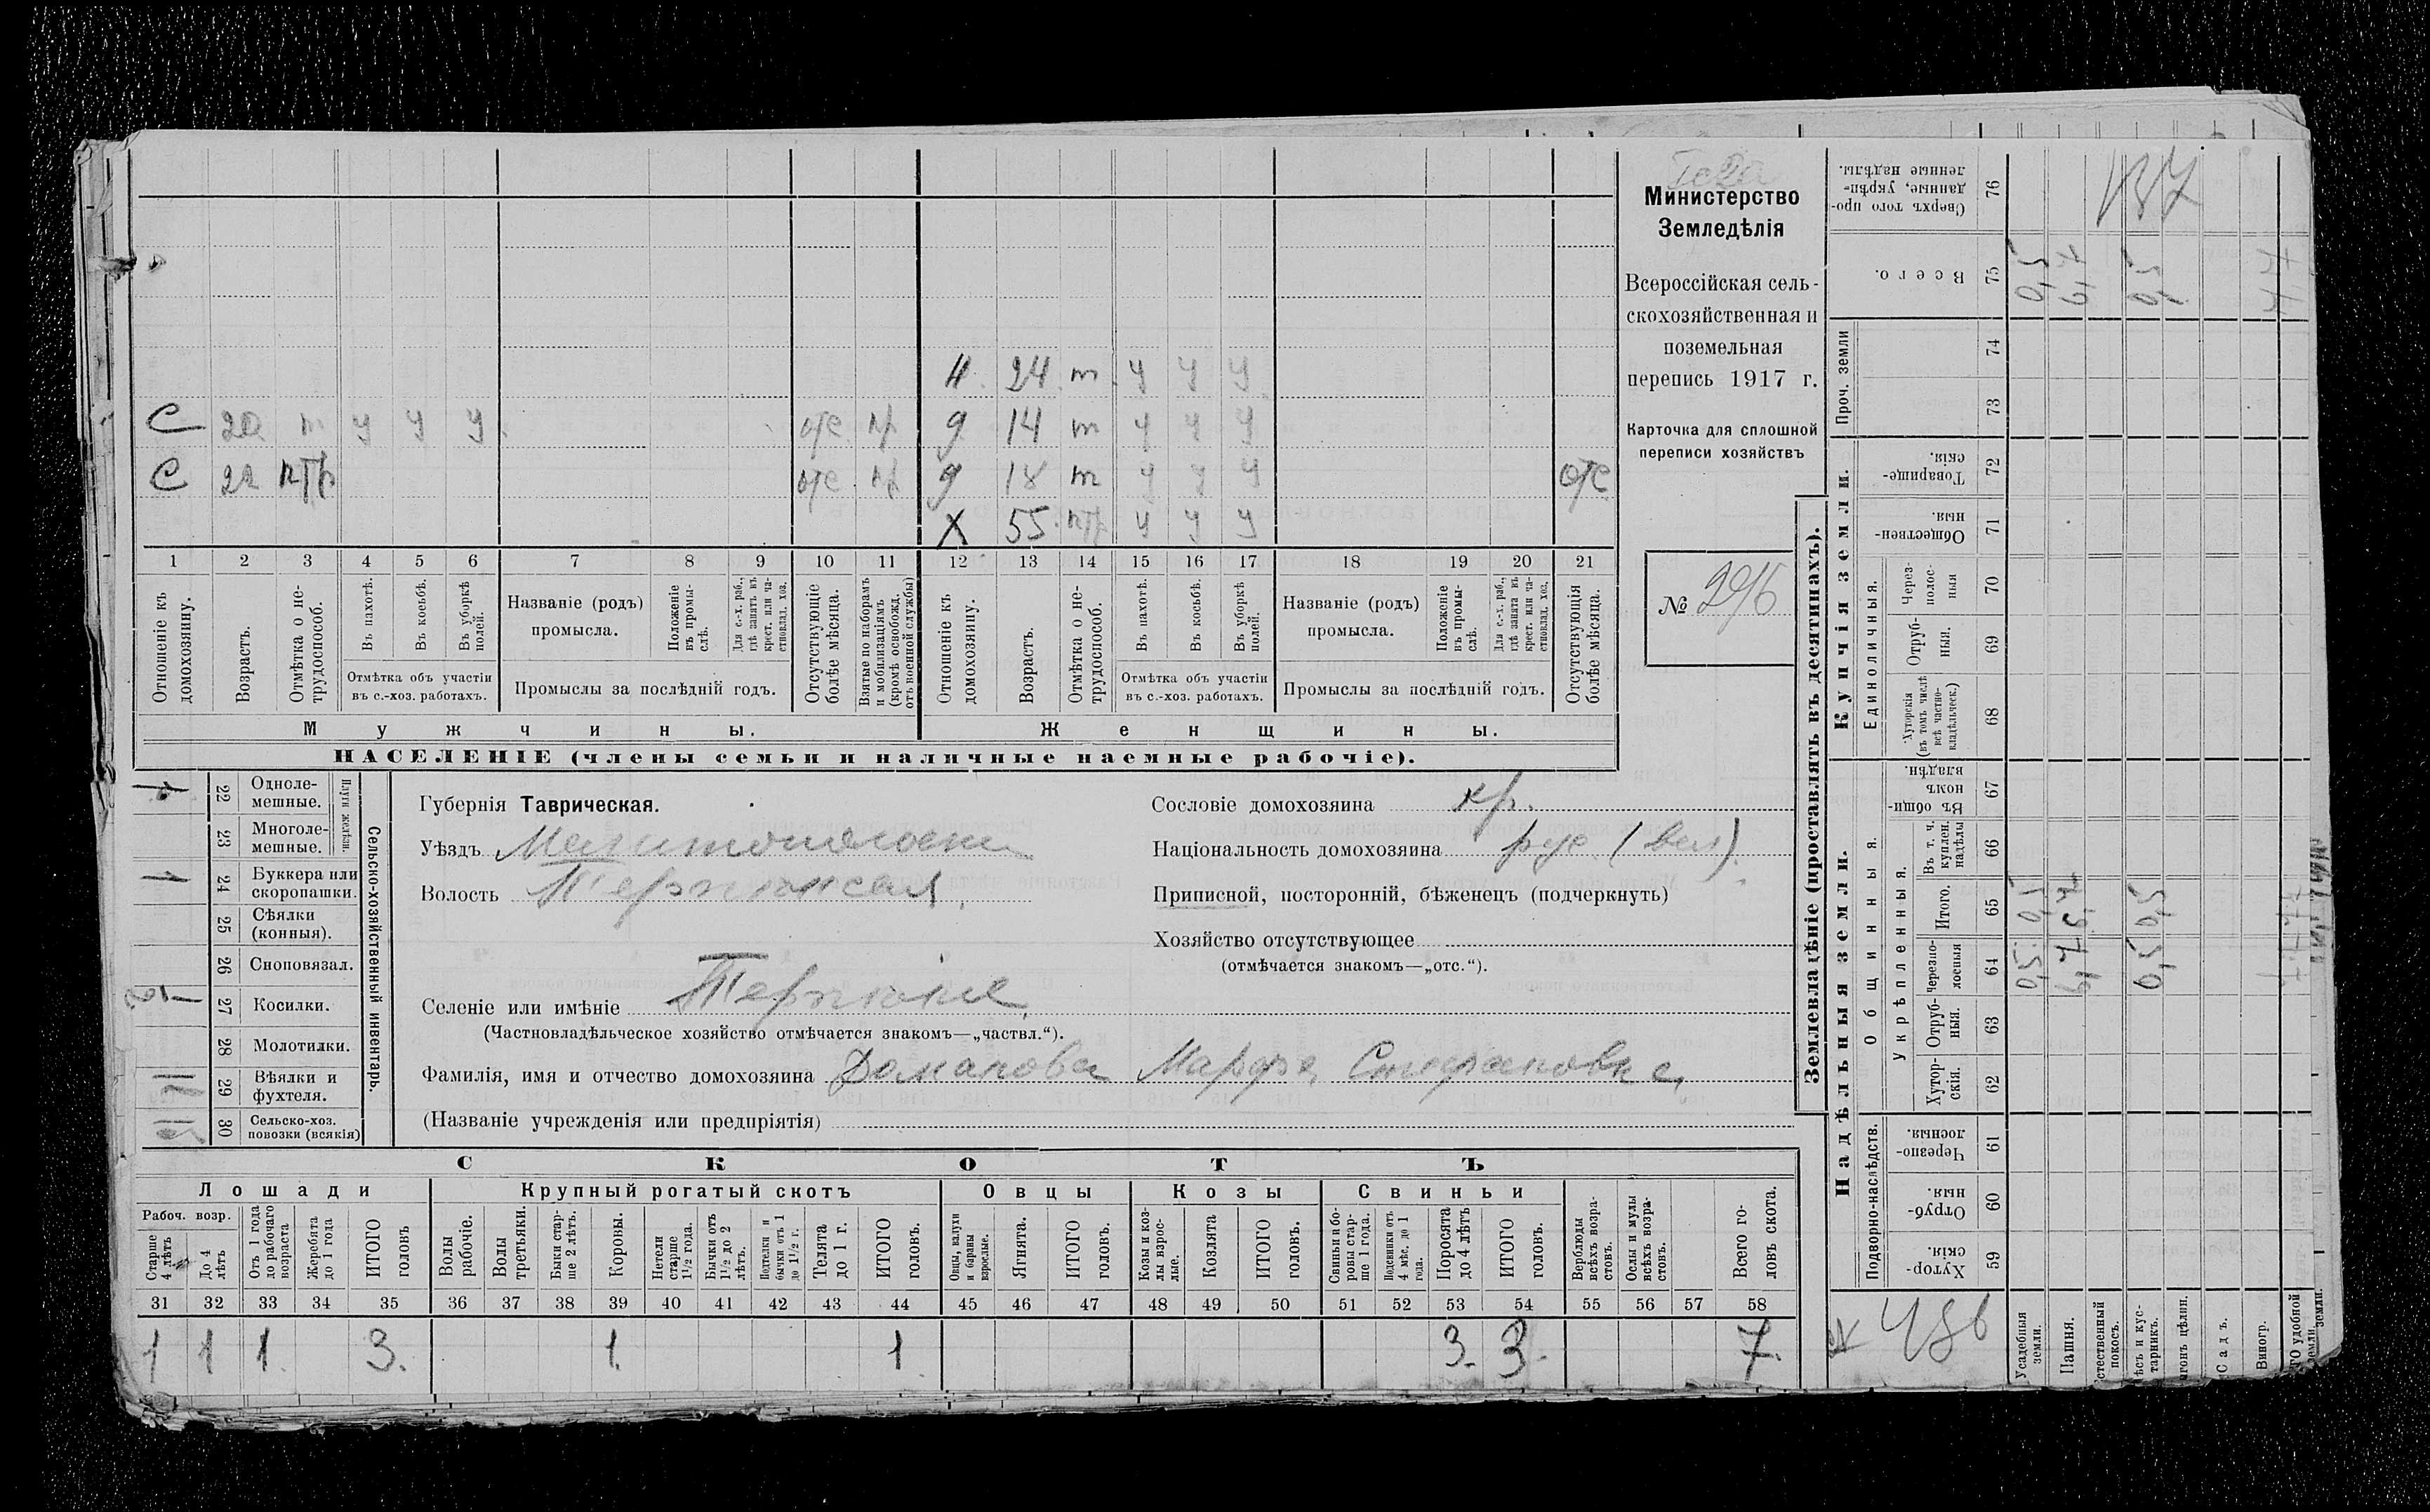 Министерство
Земледѣлія
Всероссійская сель-
скохозяйственная и
поземельная
перепись 1917 г.
Карточка для сплошной
переписи хозяйствъ
№ 296
Н. 24 т у у у
С 20 т у у у отс пр д 14 т у у у
С 22 птр отс пр д 18 т у у у отс
Х 55 птр у у у
1 2 3 4 5 6 7 8 9 10 11 12 13 14 15 16 17 18 19 20 21
Отношеніе къ домохозяину.
Возрастъ.
Отмѣтка о не-трудоспособ.
Въ пахотѣ.
Въ косьбѣ.
Въ уборкѣ полей.
Отмѣтка объ участіи
въ с.-хоз. работахъ.
Названіе (родъ)
промысла.
Положеніе въ промы-слѣ.
Для с.-х. раб., гдѣ занятъ въ крест. или ча-стновлад. хоз.
Промыслы за послѣдній годъ.
Отсутствующіе болѣе мѣсяца.
Взятые по наборамъ и мобилизаціямъ (кромѣ освобожд. отъ военной службы)
Отношеніе къ домохозяину.
Возрастъ.
Отмѣтка о не-трудоспособ.
Въ пахотѣ.
Въ косьбѣ.
Въ уборкѣ полей.
Отмѣтка объ участіи
въ с.-хоз. работахъ.
Названіе (родъ)
промысла.
Положеніе въ промы-слѣ.
Для с.-х. раб., гдѣ занята въ крест. или ча-стновлад. хоз.
Промыслы за послѣдній годъ.
Отсутствующія болѣе мѣсяца.
Мужчины. Женщины.
НАСЕЛЕНІЕ (члены семьи и наличные наемные рабочіе).
Сельско-хозяйственный инвентарь.
Плуги желѣзн.
22 Одноле-мешные. 1
23 Многоле-мешные.
24 Буккера или скоропашки. 1
25 Сѣялки (конныя).
26 Сноповязал.
27 Косилки.
28 Молотилки.
29 Вѣялки и фухтеля.
30 Сельско-хоз. повозки (всякія)
Губернія Таврическая.
Уѣздъ Мелитопольскій
Волость Терпѣніевская
Селеніе или имѣніе Терпѣніе
(Частновладѣльческое хозяйство отмѣчается знакомъ—„частвл.“).
Фамилія, имя и отчество домохозяина Домапова Марфа Стефановна
(Названіе учрежденія или предпріятія)
Сословіе домохозяина кр.
Національность домохозяина рус. (вел).
Приписной, посторонній, бѣженецъ (подчеркнуть)
Хозяйство отсутствующее
(отмѣчается знакомъ—„отс.“).
СКОТЪ
Лошади Крупный рогатый скотъ Овцы Козы Свиньи
Рабоч. возр.
Старше 4 лѣтъ
До 4 лѣтъ
Отъ 1 года до рабочаго возраста
Жеребята до 1 года
ИТОГО головъ
Волы рабочіе.
Волы третьяки.
Быки стар-ше 2 лѣтъ.
Коровы.
Нетели старше 1½ года.
Бычки отъ 1½ до 2 лѣтъ.
Подтелки и бычки отъ 1 до 1½ г.
Телята до 1 г.
ИТОГО головъ.
Овцы, валухи и бараны взрослые.
Ягнята.
ИТОГО головъ.
Козы и коз-лы взрос-лые.
Козлята
ИТОГО головъ.
Свиньи и бо-ровы стар-ше 1 года.
Подсвинки отъ 4 мѣс. до 1 года.
Поросята до 4 лѣтъ
ИТОГО головъ.
Верблюды всѣхъ возра-стовъ.
Ослы и мулы всѣхъ возра-стовъ.
Всего го-ловъ скота.
31 32 33 34 35 36 37 38 39 40 41 42 43 44 45 46 47 48 49 50 51 52 53 54 55 56 57 58
1 1 1 3. 1 1 3. 3. 7.
Землевладѣніе (проставлять въ десятинахъ).
Надѣльныя земли.
Купчія земли.
Проч. земли
Подворно-наслѣдств.
Общинныя.
Укрѣпленныя.
Единоличныя.
Хутор-скія. 59
Отруб-ныя. 60
Черезпо-лосныя. 61
Хутор-скія. 62
Отруб-ныя. 63
Черезпо-лосныя 64
Итого. 65
Въ т. ч. куплен. надѣлы 66
Въ общин-номъ владѣн. 67
Хуторскія (въ томъ числѣ всѣ частно-владѣльческ.) 68
Отруб-ныя. 69
Через-полос-ныя 70
Обществен-ныя. 71
Товарище-скія. 72
73
74
Всего. 75
Сверхъ того про-данные, укрѣп-ленные надѣлы. 76
Усадебныя земли. 0,5 0,5 0,5
Пашня.
Естественный покосъ.
Лѣсъ и кус-тарникъ. 0,5 0,5 0,5
Садъ.
Виногр.
137
486